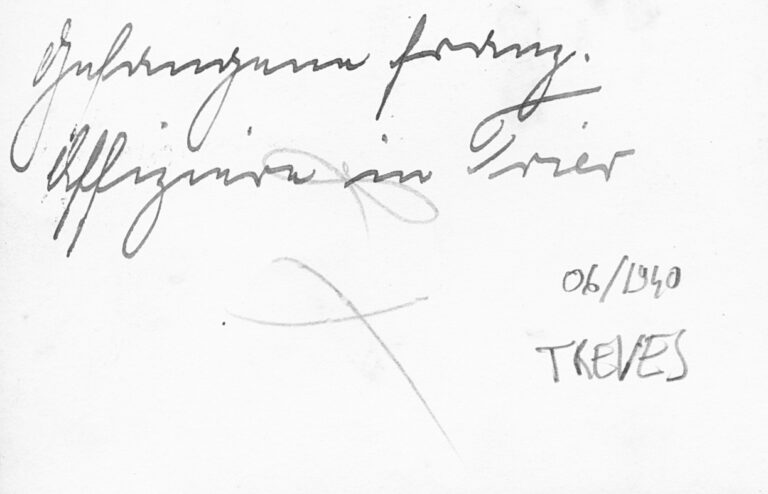 Gefangene franz.
Offiziere in Trier
06/1940
TREVES